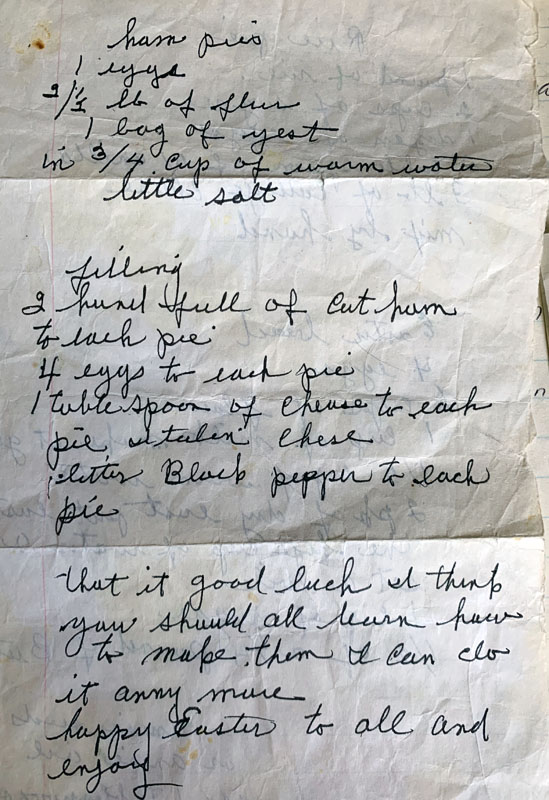 ham pies
1 eggs
2/½ lb of flur
1 bag of yest
in 3/4 cup of warm water
little salt
filling
2 hund full of cut ham
to each pie
4 eggs to each pie
1 table spoon of cheuse to each
pie, italein chese
litter Black pepper to each
pie
that it good luck I think
you should all learn how
to make them I can do
it anny more
happy Easter to all and
enjoy